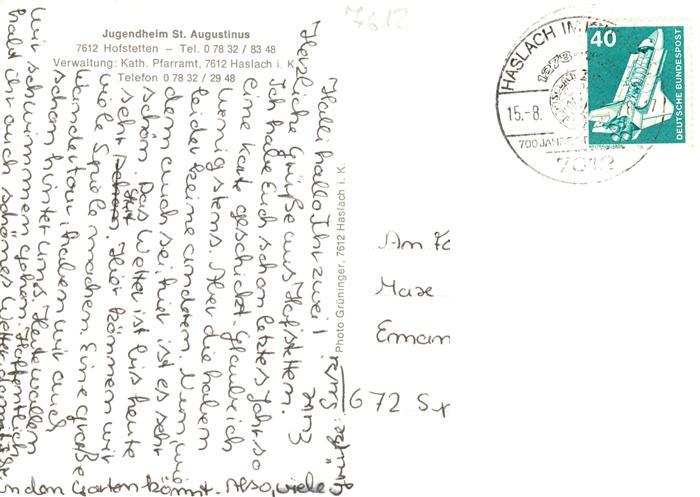 7612
Jugendheim St. Augustinus
7612 Hofstetten – Tel. 0 78 32 / 83 48
Verwaltung: Kath. Pfarramt, 7612 Haslach i. K
Telefon 0 78 32 / 29 48
Halli hallo Ihr zwei!
Herzliche Grüße aus Hofstetten.
Ich habe Euch schon letztes Jahr so
eine Karte geschickt. Glaub ich
wenigstens. Aber die haben
leider keine anderen. Nun, wie
dem auch sei, hier ist es sehr
schön. Das Wetter ist bis heute
sehr gut. Hier können wir
viele Spiele machen. Eine große
Wandertour haben wir auch
schon hinter uns. Heute wollen
wir schwimmen gehen. Hoffentlich
habt ihr auch schönes Wetter, damit Ihr
in den Garten könnt. Also, viele
Grüße:
Photo Grüninger, 7612 Haslach i. K.
HASLACH IM
15.-8.
700 JAHRE
7612
40
DEUTSCHE BUNDESPOST
Am
672 Sp